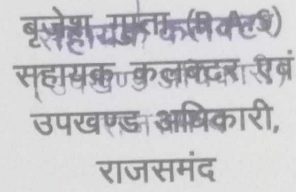 बृजेश गुप्ता (R A S)
सहायक कलक्टर एवं
उपखण्ड अधिकारी,
राजसमंद